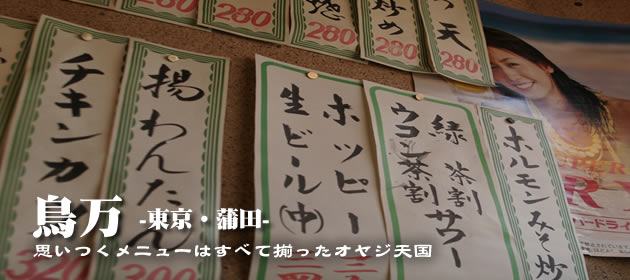 280
280
280
280
280
惣
炒め
天
チキンカ
320
揚わんたん
300
ホッピー
生ビール(中)
緑茶割サワー
ウコン茶割
ホルモンみそ炒
鳥万 -東京・蒲田-
思いつくメニューはすべて揃ったオヤジ天国